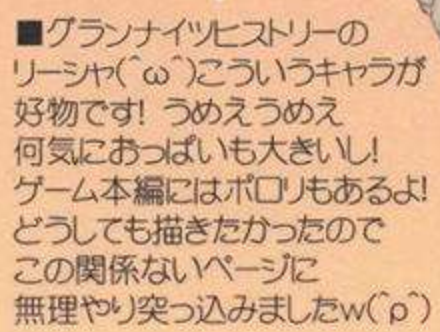 ■グランナイツヒストリーの
リーシャ(^ω^)こういうキャラが
好物です! うめえうめえ
何気におっぱいも大きいし!
ゲーム本編にはポロリもあるよ!
どうしても描きたかったので
この関係ないページに
無理やり突っ込みましたw(^ρ^)